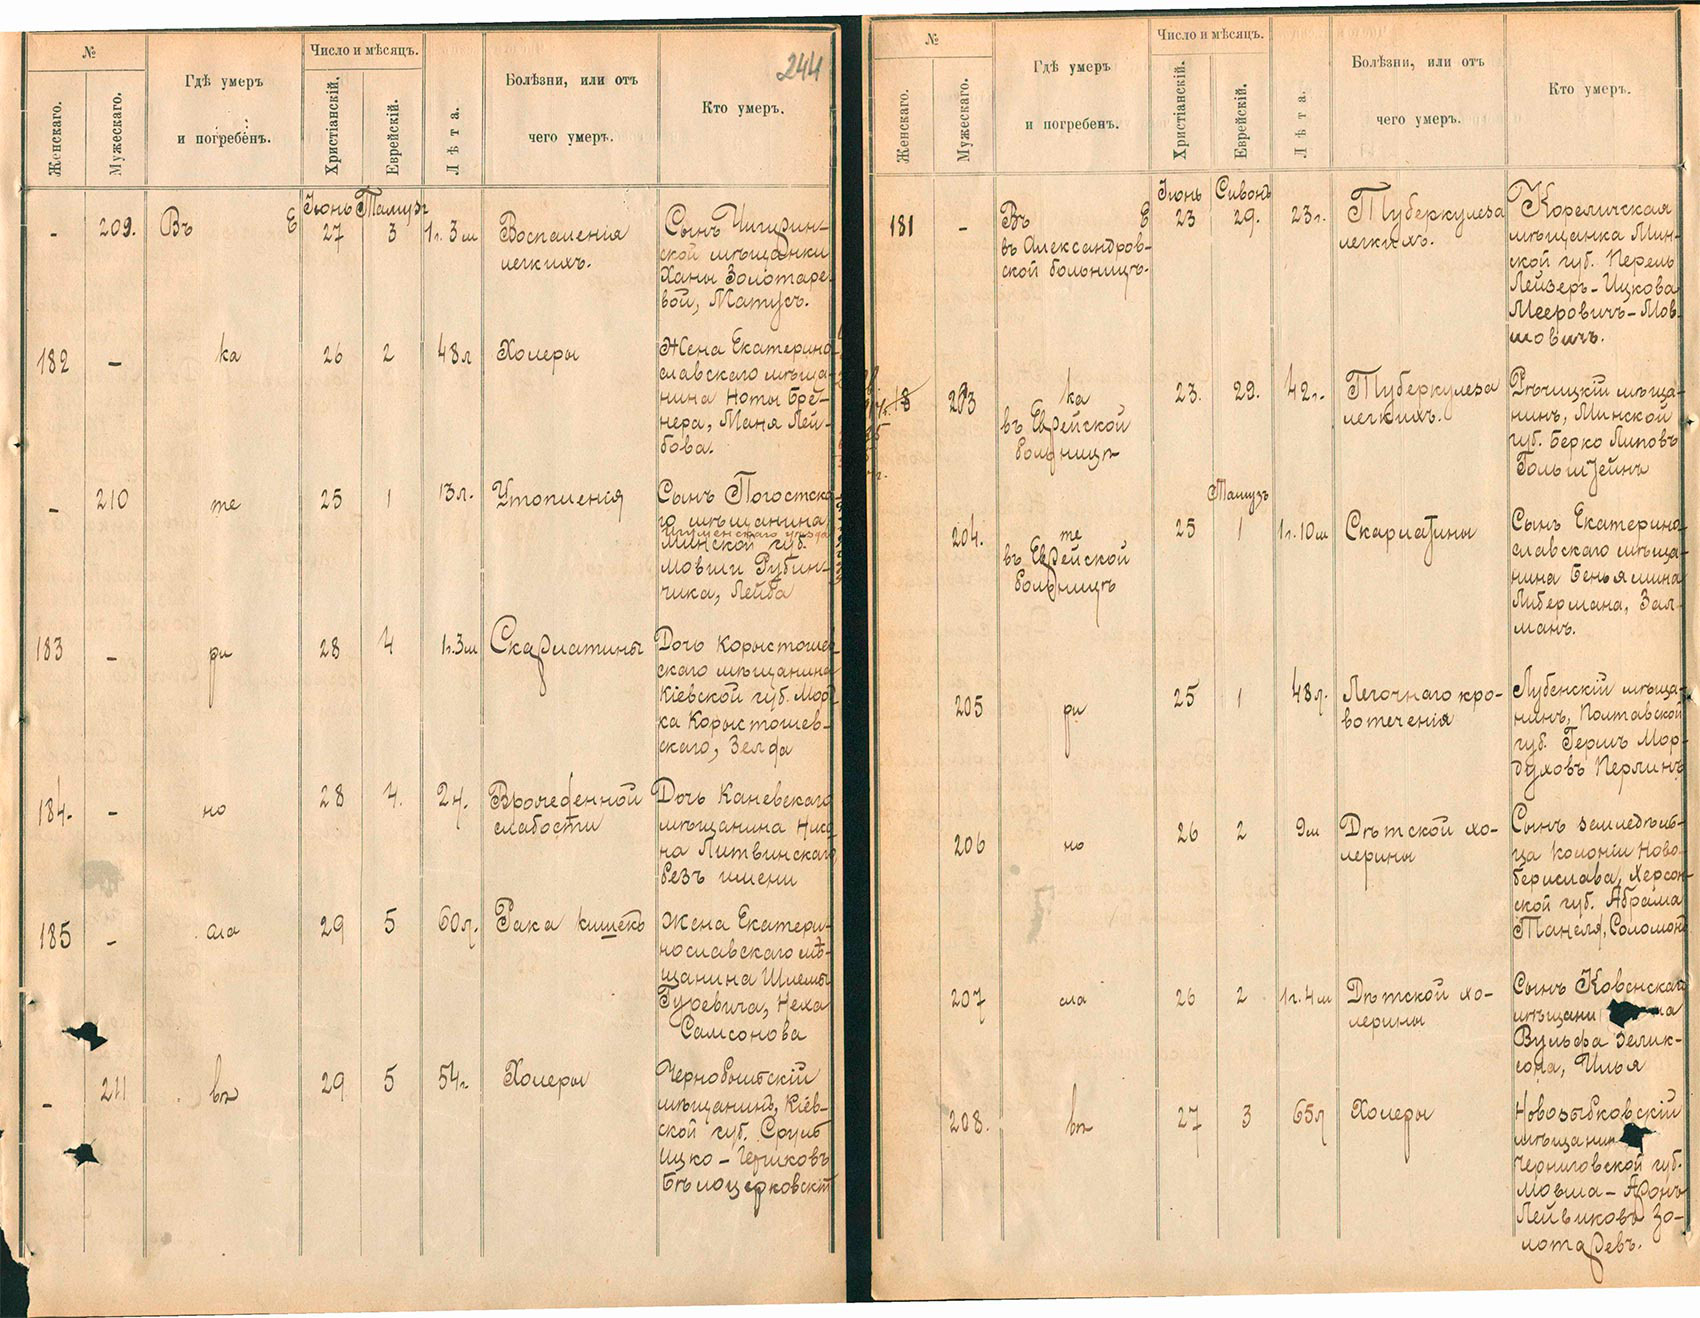 №
Гдѣ умеръ
и погребенъ.
Число и мѣсяцъ.
Женскаго.
Мужескаго.
Христіанскій.
Еврейскій.
Лѣта.
Болѣзни, или отъ
чего умеръ.
Кто умеръ.
244
Іюнь Тамузъ
- 209. Въ Е 27 3 1г. 3м Воспаленія
легкихъ.
Сынъ Чигирин-
ской мѣщанки
Ханы Золотаре-
вой, Матусъ.
182 - ка 26 2 48л Холеры
Жена Екатерино-
славскаго мѣща-
нина Ноты Бре-
нера, Маня Лей-
бова.
- 210 те 25 1 13л. Утопленія
Сынъ Погостска-
го мѣщанина,
Игуменскаго уѣзда
Минской губ.
Мовши Рубин-
чика, Лейба
183 - ри 28 4 1г.3м Скарлатины
Дочь Коростышев-
скаго мѣщанина
Кіевской губ. Мор-
ка Коростышев-
скаго, Зелда
184. - но 28 4. 2ч. Врожденной
слабости
Дочь Каневскаго
мѣщанина
Литвинскаго
безъ имени
185 - сла 29 5 60л. Рака кишекъ
Жена Екатери-
нославскаго мѣ-
щанина Шлемы
Гуревича, Неха
Самсонова
- 211 въ 29 5 54г. Холеры
Чернобыльскій
мѣщанинъ, Кіев-
ской губ. Сруль
Ицко-Гершковъ
Бѣлоцерковскій
№
Гдѣ умеръ
и погребенъ.
Число и мѣсяцъ.
Женскаго.
Мужескаго.
Христіанскій.
Еврейскій.
Лѣта.
Болѣзни, или отъ
чего умеръ.
Кто умеръ.
Іюнь Сивонъ
181 - Въ Е 23 29. 23г. Туберкулеза
въ Александров-
ской больницѣ.
легкихъ.
Кореличская
мѣщанка Мин-
ской губ. Перель
Лейзеръ-Ицкова
Мееровичъ-Мов-
шовичъ.
18 203 ка 23. 29. 42г. Туберкулеза
въ Еврейской
больницѣ
легкихъ.
Рѣчицкій мѣща-
нинъ, Минской
губ. Берко Липовъ
Гольштейнъ
Тамузъ
204. те 25 1 1г.10м Скарлатины
въ Еврейской
больницѣ
Сынъ Екатерино-
славскаго мѣща-
нина Беньямина
Либермана, Зал-
манъ.
205 ри 25 1 48л. Легочнаго кро-
вотеченія
Лубенскій мѣща-
нинъ, Полтавской
губ. Гершъ Мор-
духовъ Перлинъ
206 но 26 2 9м Дѣтской хо-
лерины
Сынъ земледѣль-
ца колоніи Ново-
берислава, Херсон-
ской губ. Абрама
Танеля, Соломонъ
207 сла 26 2 1г.4м Дѣтской хо-
лерины
Сынъ Ковенскаго
мѣщани на
Вульфа Зелик-
сона, Илья
208. въ 27 3 65л Холеры
Новозыбковскій
мѣщанин
Черниговской губ.
Мовша-Аронъ
Лейвиковъ Зо-
лотаревъ.